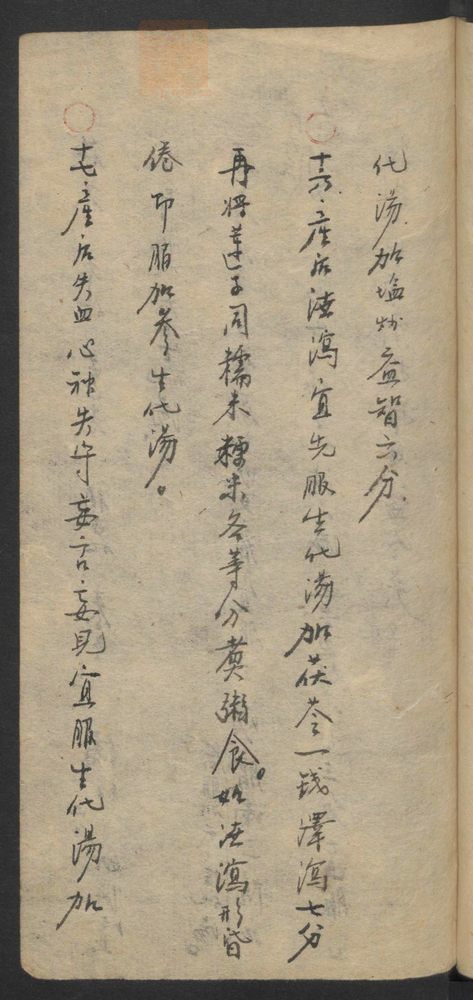 化湯加塩炒益智六分
十六、產后洩瀉宜先服生化湯加茯苓一錢澤瀉七分
再將蓮子同糯米粳米各等分煑粥食。如洩瀉形昏
倦即服加參生化湯。
十七、產后失血心神失守妄言妄見宜服生化湯加